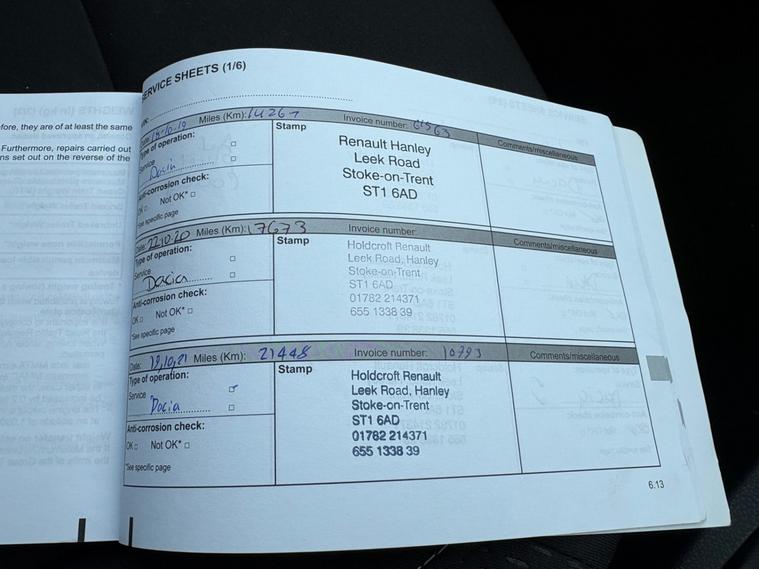 fore, they are of at least the same
Furthermore, repairs carried out
ns set out on the reverse of the
SERVICE SHEETS (1/6)
VIN:
Date: Miles (Km): Invoice number:
Type of operation:
Service
Dacia
Anti-corrosion check:
OK □ Not OK* □
*See specific page
Stamp
Renault Hanley
Leek Road
Stoke-on-Trent
ST1 6AD
Comments/miscellaneous
Date: 22.10.20 Miles (Km): 17673 Invoice number:
Type of operation:
Service
Dacia
Anti-corrosion check:
OK □ Not OK* □
*See specific page
Stamp
Holdcroft Renault
Leek Road, Hanley
Stoke-on-Trent
ST1 6AD
01782 214371
655 1338 39
Comments/miscellaneous
Date: 19,10,21 Miles (Km): 21448 Invoice number: 10793
Type of operation:
Service
Dacia
Anti-corrosion check:
OK □ Not OK* □
*See specific page
Stamp
Holdcroft Renault
Leek Road, Hanley
Stoke-on-Trent
ST1 6AD
01782 214371
655 1338 39
Comments/miscellaneous
6.13